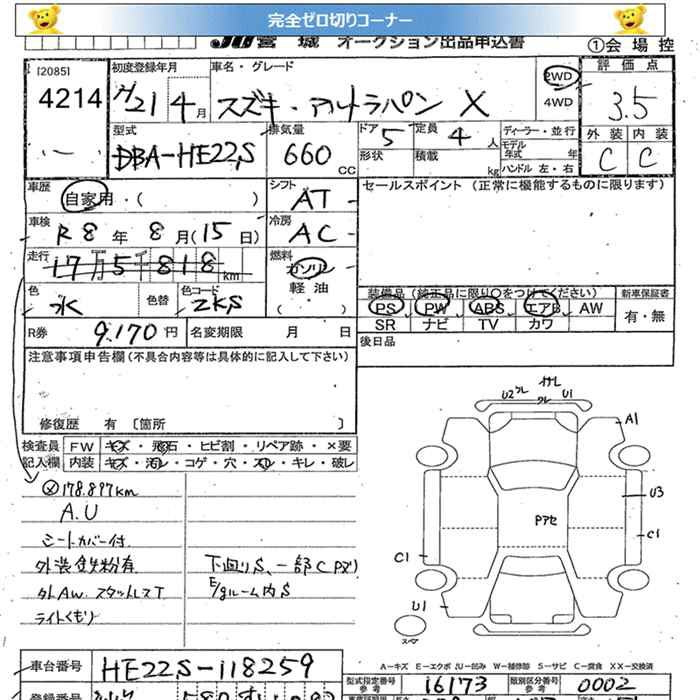 完全ゼロ切りコーナー
JU宮城 オークション出品申込書
①会場控
[2085]
4214
初度登録年月
H21 4月
車名・グレード
スズキ・アルトラパン X
2WD
4WD
評価点
3.5
外装 内装
C C
型式
DBA-HE22S
排気量
660 CC
ドア 5
形状
定員 4 人
積載 kg
ディーラー・並行
モデル年式 年
ハンドル 左・右
車歴
自家用・( )
シフト
AT
セールスポイント (正常に機能するものに限ります)
車検
R8年8月(15日)
冷房
AC
走行
17万5千818km
燃料
ガソリン
軽油
( )
色
水
色替
色コード
ZKS
装備品(純正品に限り○をつけてください)
PS PW ABS エアB AW
SR ナビ TV カワ
新車保証書
有・無
R券 9,170円
名変期限 月 日
後日品
注意事項申告欄(不具合内容等は具体的に記入して下さい)
修復歴 有 〔箇所 〕
検査員記入欄
FW キズ・飛石・ヒビ割・リペア跡・×要
内装 キズ・汚レ・コゲ・穴・スレ・キレ・破レ
178.897km
A.U
シートカバー付
外装鉄粉有
外AW.スタットレスT
ライトくもり
下回りS、一部CPズリ
E/gルーム内S
U2 クレ サレ クレ U1
A1
U3
Pアセ
C1
C1
U1
スマ
A-キズ E-エクボ JU-凹み W-補修部 S-サビ C-腐食 XX-交換済
車台番号
HE22S-118259
型式指定番号 参考
16173
類別区分番号 参考
0002
登録番号
580